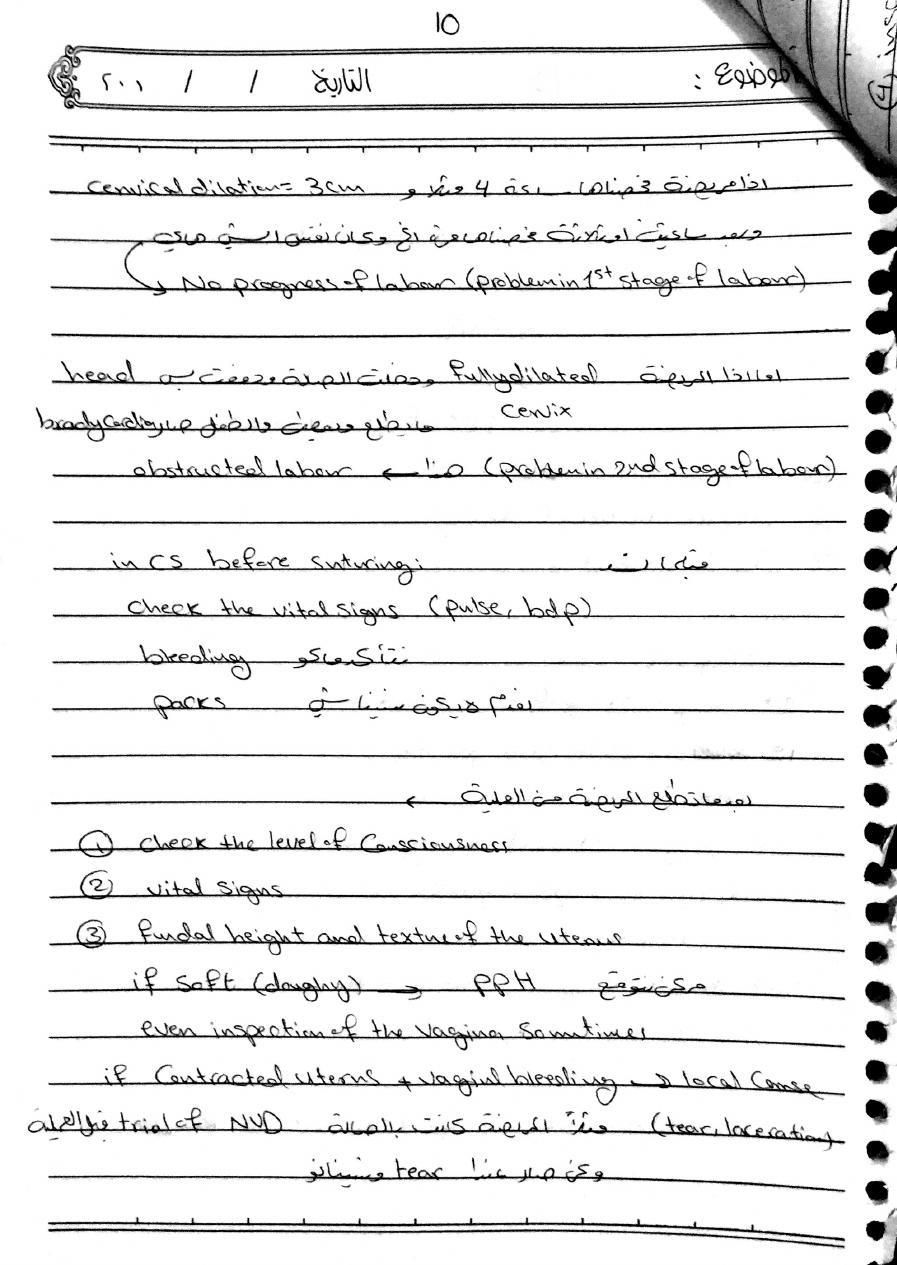 10
الموضوع : التاريخ / / ٢٠٠١
اذا مريضة فحصناها ساعة 4 مثلا و cervical dilation = 3cm
وبعد ساعتين او ثلاثة فحصناها مرة اخ وكان نفس الشي
No progress of labour (problem in 1st stage of labour)
اما اذا المريضة fully dilated cervix ودخلت الصالة ودفعت بس head
مايطلع والطفل صار bradycardia
(problem in 2nd stage of labour) هنا ← obstructed labour
in CS before suturing:
check the vital signs (pulse, bdp)
نتأكد ماكو bleeding
لايكون نسينا شي packs
بعدما تطلع المريضة من العملية ←
① check the level of Consciousness
② vital signs
③ fundal height and texture of the uterus
if soft (doughy) → PPH ممكن نتوقع
even inspection of the vagina somtimes
if Contracted uterus + vaginl bleeding → local Cause
(tear, laceration) مثلاً المريضة كانت بالصالة trial of NVD قبل العملية
وكن صار عدنا tear ونسيناه